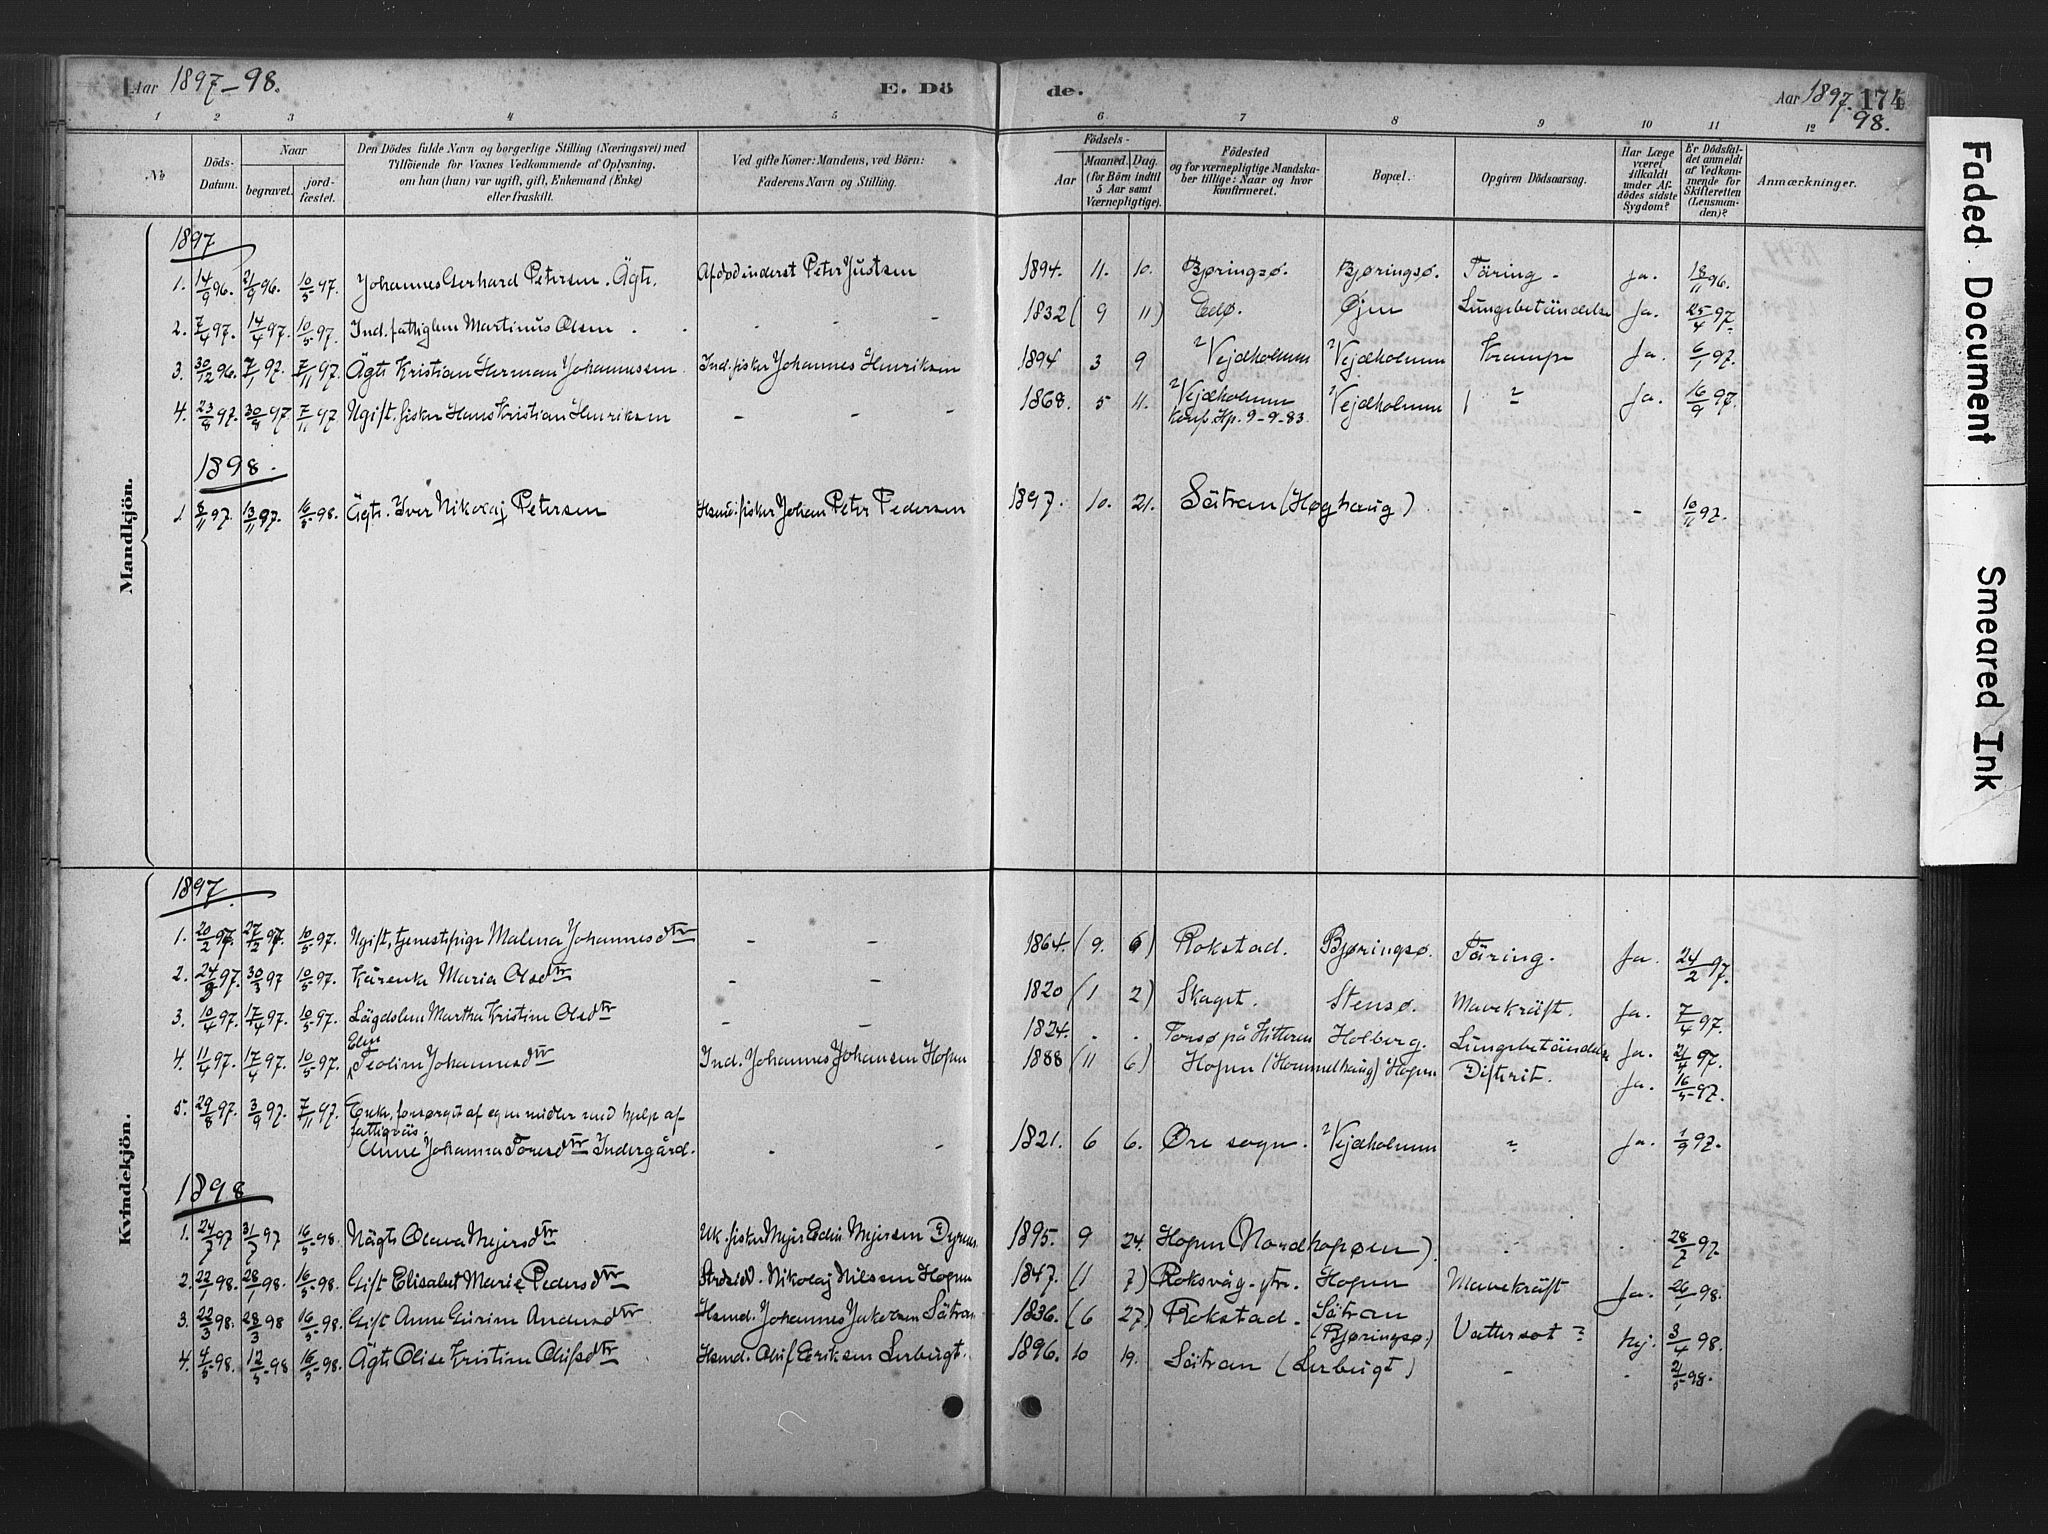 Aar 1897-98. E. Dö de. Aar 1897. 174
98.
1 2 3 4 5 6 7 8 9 10 11 12
No Döds-Datum. Naar begravet. jord-fæstet. Den Dödes fulde Navn og borgerlige Stilling (Næringsvei) med Tilföiende for Voxnes Vedkommende af Oplysning, om han (hun) var ugift, gift, Enkemand (Enke) eller fraskilt. Ved gifte Koner: Mandens, ved Börn: Faderens Navn og Stilling. Födsels- Aar Maaned. Dag. (for Börn indtil 5 Aar samt Værnepligtige). Födested og for værnepligtige Mandskaber tillige: Naar og hvor konfirmeret. Bopæl. Opgiven Dödsaarsag. Har Læge været tilkaldt under Afdödes sidste Sygdom? Er Dödsfaldet anmeldt af Vedkommende for Skifteretten (Lensmanden)? Anmærkninger.
Mandkjön.
1897
1. 14/9 96. 21/9 96. 10/5 97. Johannes Gerhard Petersen. Ägt. Afdöd inderst Peter Justsen 1894. 11. 10. Bjøringsø. Bjøringsø. Täring - Ja. 18/11 96.
2. 7/4 97. 14/4 97. 10/5 97. Ind. fattiglem Martinus Olsen . - - - 1832 (9 11) Edø. Øjen Lungebetändelse Ja. 25/4 97.
3. 30/12 96. 7/1 97. 7/11 97. Ägt. Kristian Herman Johannessen Ind. fisker Johannes Henriksen 1894 3 9 Vejdholmen Vejdholmen Krampe Ja. 6/1 97.
4. 23/8 97. 30/8 97 7/11 97. Ugift. fisker Hans Kristian Henriksen - - - 1868. 5 11. Vejdholmen Konf. Hp. 9-9-83. Vejdholmen ? Ja. 16/9 97.
1898.
1. 8/11 97. 13/11 97. 16/5 98. Ägt. Iver Nikolaj Petersen Hsmd. fisker Johan Peter Pedersen 1897. 10. 21. Sätran (Høghaug) - - 10/11 97.
Kvindekjön.
1897
1. 20/2 97. 27/2 97. 10/5 97. Ugift, tjenestpige Malena Johannesdtr - - 1864. (9. 6) Rokstad. Bjøringsø. Täring. Ja. 24/2 97.
2. 24/ 97. 30/3 97 10/5 97. Kårenke Maria Olsdtr - - 1820 (1 2) Skaget. Stensø. Mavekräft. Ja. 7/4 97.
3. 10/4 97. 17/4 97. 10/5 97. Lägdslem Martha Kristine Olsdtr - - 1824. . . på Hitteren Holberg. Lungebetändelse Ja. 21/4 97.
4. 11/4 97. 17/4 97. 10/5 97. Elen Teoline Johannesdtr Ind. Johannes Johansen Hopen 1888 (11 6) Hopen (Hommelhaug) Hopen Difterit. Ja. 16/5 97.
5. 29/8 97. 3/9 97. 7/11 97. Enke, forsørget af egne midler med hjelp af
fattigväs.
Anne Johanna Toresdtr Indergård. - - 1821. 6 6. Øre sogn. Vejdholmen ? Ja. 1/9 97.
1898
1. 24/7 97 31/7 97 16/5 98. Uägt. Olava Mejersdtr Uk. fisker Mejer Edin Mejersen Dyrnes. 1895. 9 24. Hopen (Nordhopøen). . . 28/7 97.
2. 22/1 98. 28/1 98. 16/5 98. Gift Elisabet Marie Pedersdtr Strdsidd. Nikolaj Nilsen Hopen 1847. (1 7) Roksvåg. ytr. Hopen Mavekräft Ja. 26/1 98.
3. 22/3 98. 28/3 98 16/5 98. Gift Anne Gurine Andersdtr Hsmd. Johannes Jakobsen Sätran 1836. (6 27) Rokstad. Sätran (Bjøringsø.) Vattersot? Nej. 3/4 98.
4. 4/5 98. 12/5 98 16/5 98. Ägt. Olise Kristine Olufsdtr Hsmd. Oluf Eriksen Lerbergt. 1896. 10 19. Sätran (Lerbergt) - - 21/5 98.
Faded Document
Smeared Ink